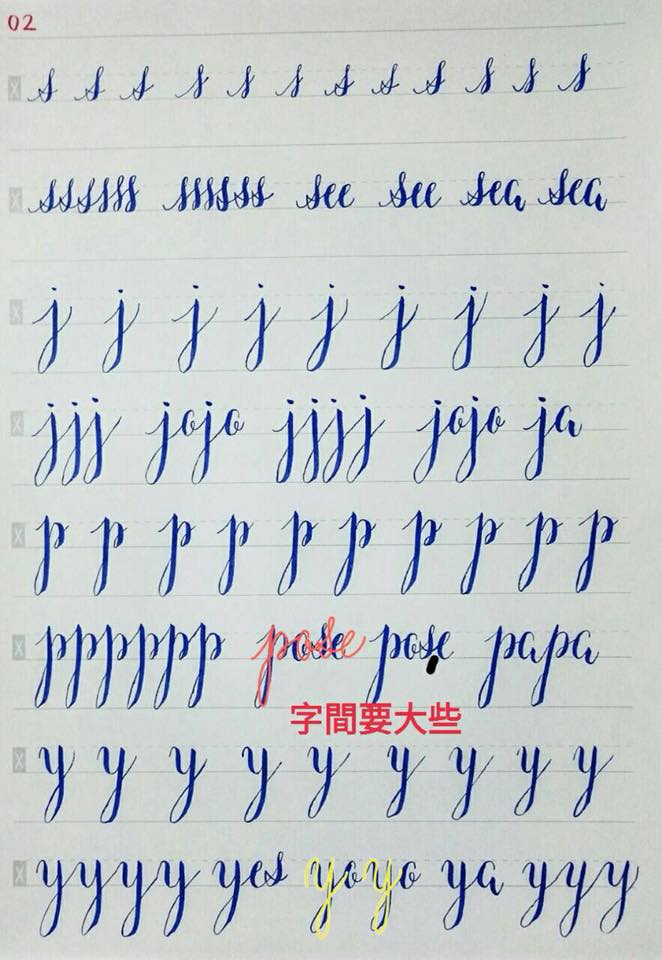 02
X s s s s s s s s s s s s
X ssssss ssssss see see sea sea
X j j j j j j j j j
X jjj jojo jjjj jojo ja
X p p p p p p p p p p
X pppppp pose pose papa
字間要大些
X y y y y y y y y y
X yyyy yes yoyo ya yyy